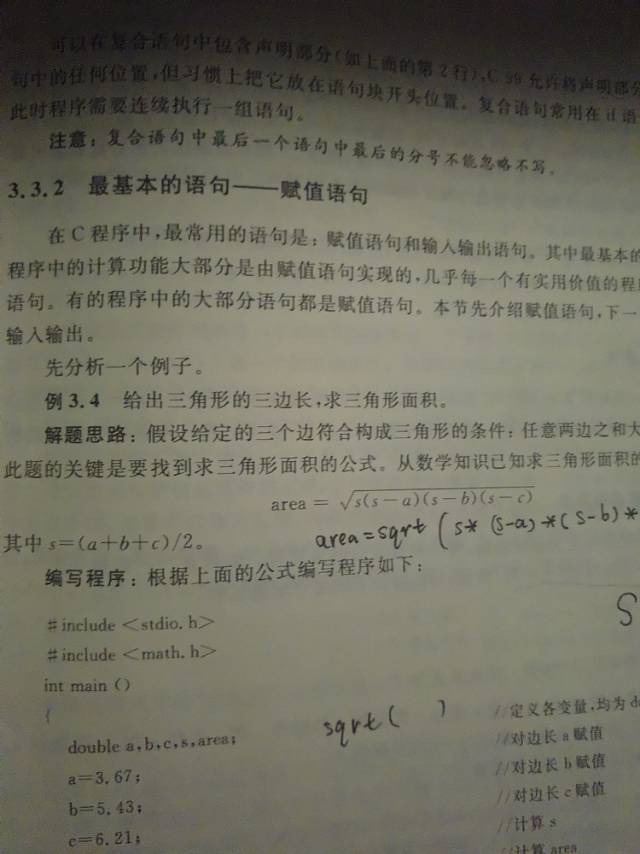 可以在复合语句中包含声明部分(如上面的第2行),C 99允许将声明部分
句中的任何位置,但习惯上把它放在语句块开头位置。复合语句常用在if语
此时程序需要连续执行一组语句。
注意:复合语句中最后一个语句中最后的分号不能忽略不写。
3.3.2 最基本的语句——赋值语句
在C程序中,最常用的语句是:赋值语句和输入输出语句。其中最基本的
程序中的计算功能大部分是由赋值语句实现的,几乎每一个有实用价值的程
语句。有的程序中的大部分语句都是赋值语句。本节先介绍赋值语句,下一
输入输出。
先分析一个例子。
例3.4 给出三角形的三边长,求三角形面积。
解题思路:假设给定的三个边符合构成三角形的条件:任意两边之和大
此题的关键是要找到求三角形面积的公式。从数学知识已知求三角形面积的
area = √s(s-a)(s-b)(s-c)
area=sqrt(s*(s-a)*(s-b)*
其中s=(a+b+c)/2。
编写程序:根据上面的公式编写程序如下:
S
#include <stdio.h>
#include <math.h>
int main ()
{
sqrt( )
double a,b,c,s,area; //定义各变量,均为do
a=3.67; //对边长a赋值
b=5.43; //对边长b赋值
c=6.21; //对边长c赋值
//计算s
//计算area